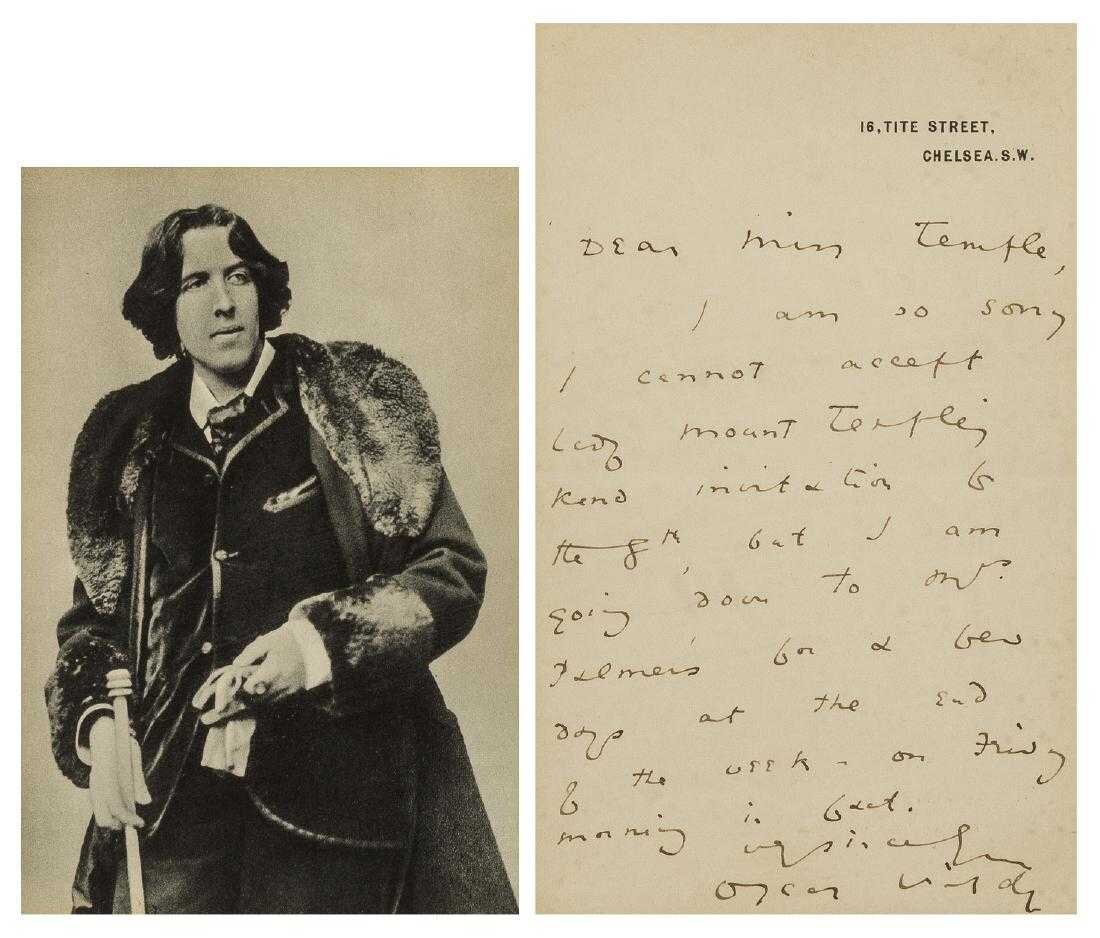 16, TITE STREET,
CHELSEA. S.W.
Dear Miss Temple,
I am so sorry
I cannot accept
Lady Mount Temple's
kind invitation for
the 8th, but I am
going down to Mrs.
Palmer's for a few
days at the end
of the week - on Friday
morning in fact.
Very sincerely
Oscar Wilde